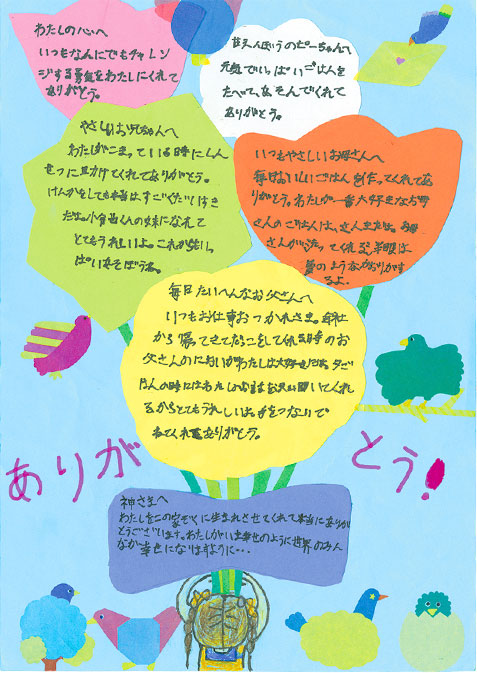 わたしの心へ
いつもなんにでもチャレン
ジする勇気をわたしにくれて
ありがとう。
甘えんぼうのピーちゃんへ
元気でいっぱいごはんを
たべて、あそんでくれて
ありがとう。
やさしいお兄ちゃんへ
わたしがこまっている時にしん
せつに助けてくれてありがとう。
けんかをしても本当はすごくだいすき
だよ。
くんの妹になれて
とてもうれしいよ。これからもいっ
ぱいあそぼうね。
いつもやさしいお母さんへ
毎日おいしいごはんを作ってくれてあ
りがとう。わたしが一番大好きなお母
さんのごはんは、
さんが
てくれる
は
夢のようなかおりがす
るよ。
毎日たいへんなお父さんへ
いつもお仕事おつかれさま。会社
から帰ってきてだっこをしてくれる時のお
父さんのにおいがわたしは大好きだよ。夕ご
はんの時にはわたしのお話を沢山聞いてくれ
るからとてもうれしいよ。手をつないで
ねてくれてありがとう。
ありがとう!
神さまへ
わたしをこの家ぞくに生まれさせてくれて本当にありが
とうございます。わたしがいま幸せのように世界のみん
なが幸せになりますように…